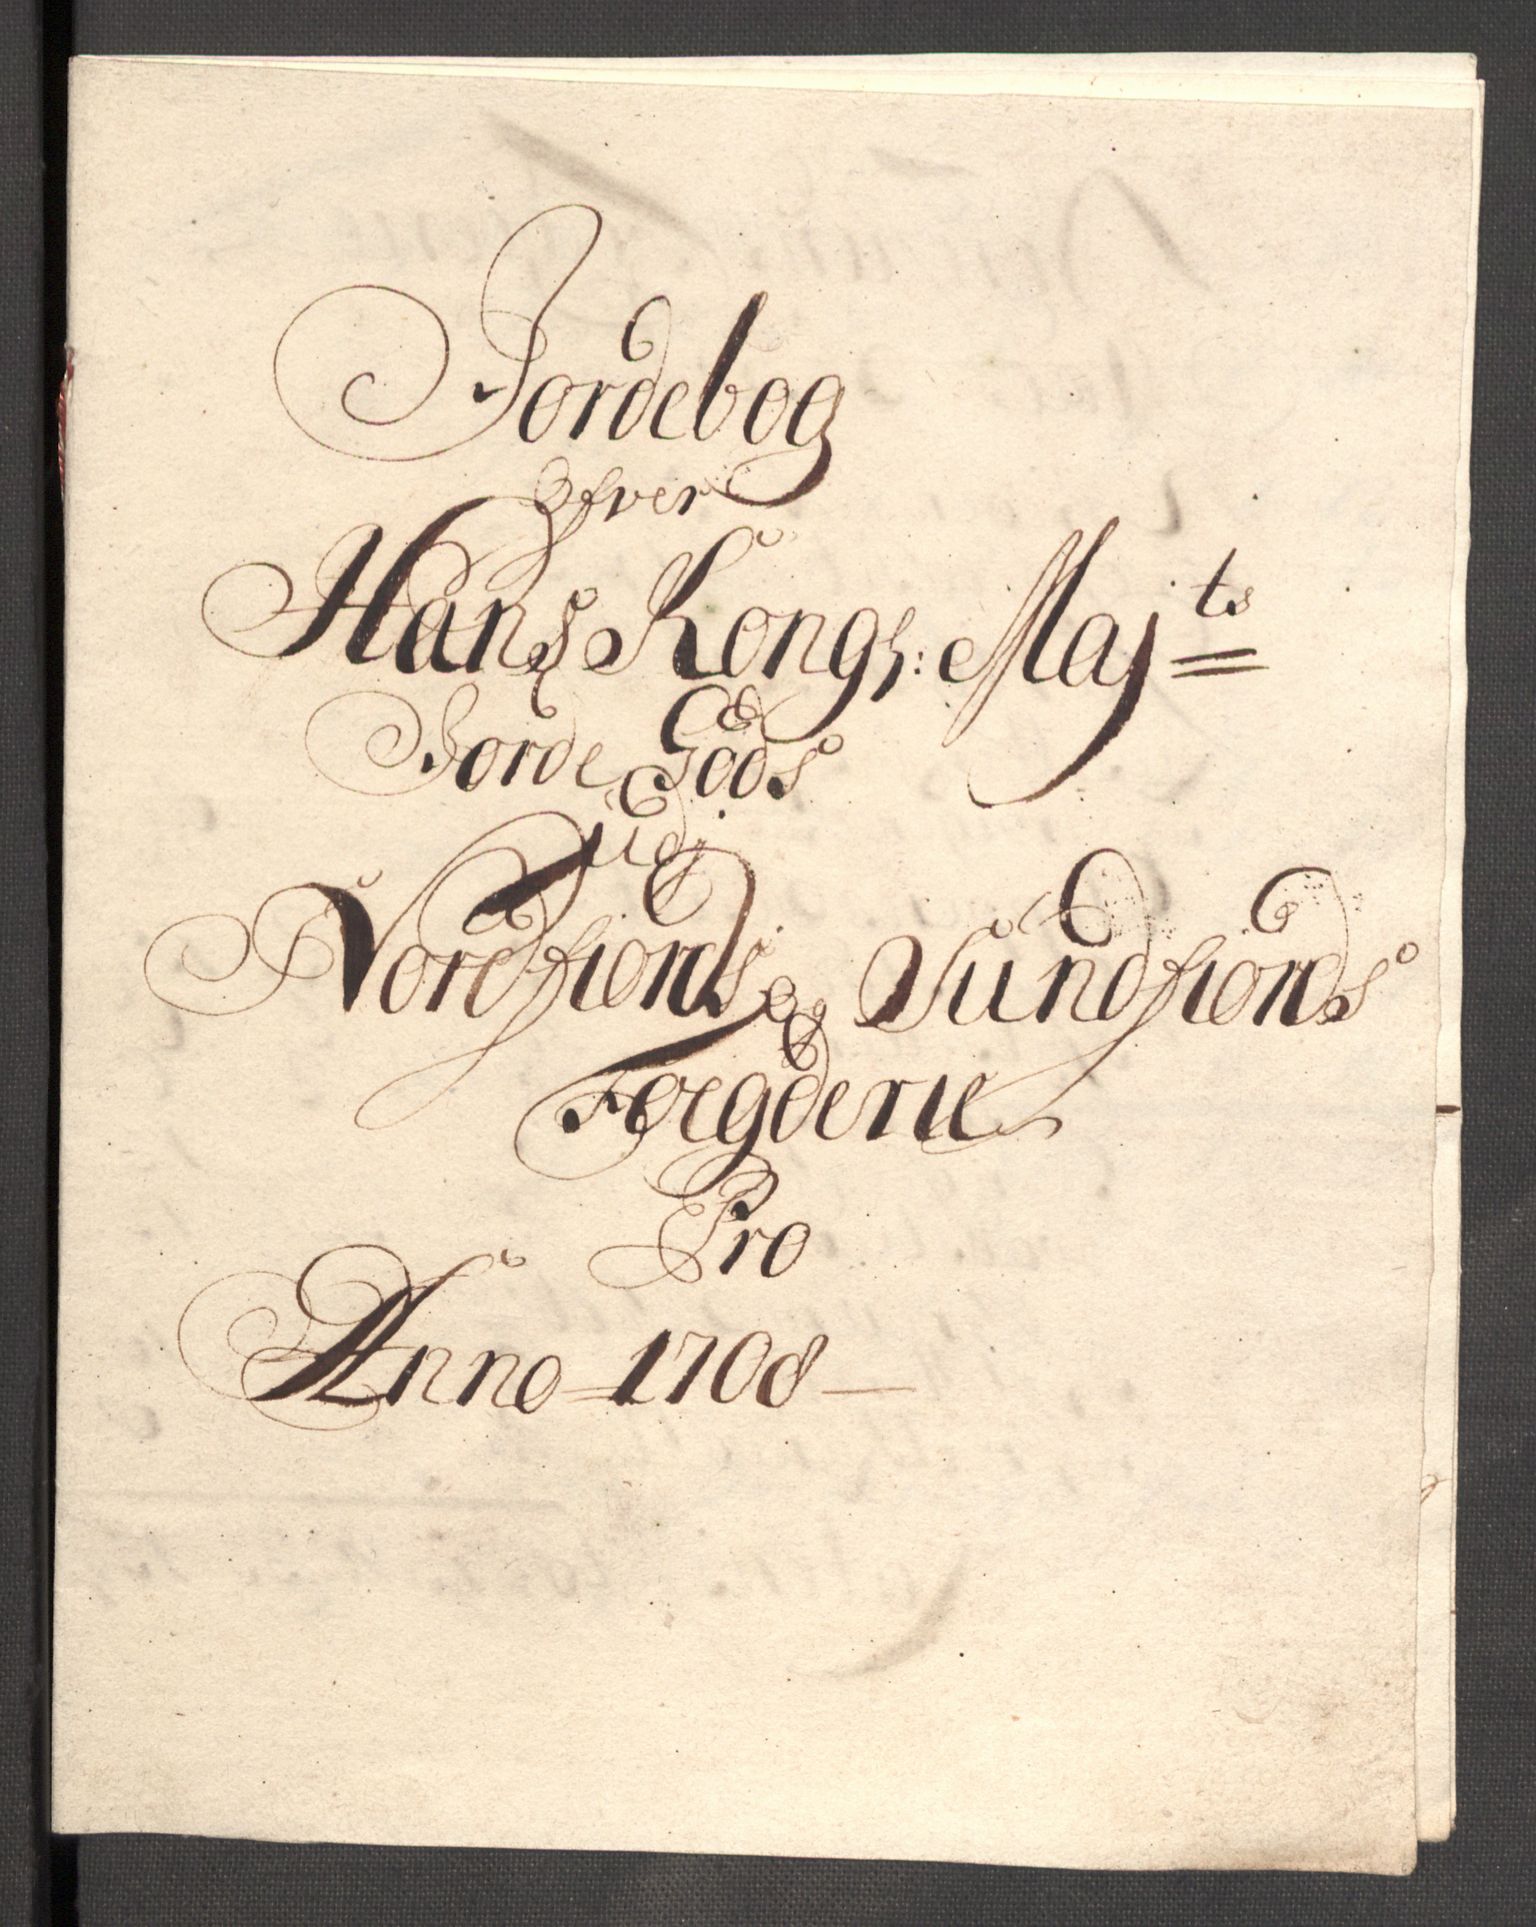 Jordebog
Ofver
Hans Kongl: Majts
Jorde Gods
Udj
Nordfiords og Sundfiords
Foegderie
Pro
Anno 1708